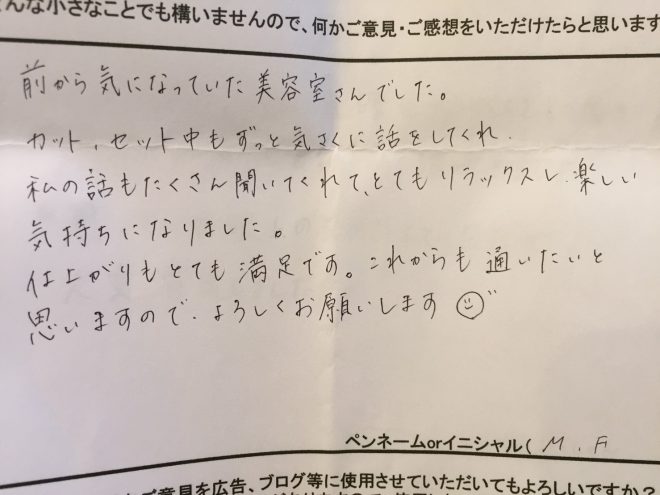 んな小さなことでも構いませんので、何かご意見・ご感想をいただけたらと思います
前から気になっていた美容室さんでした。
カット、セット中もずっと気さくに話をしてくれ、
私の話もたくさん聞いてくれて、とてもリラックスし、楽しい
気持ちになりました。
仕上がりもとても満足です。これからも通いたいと
思いますので、よろしくお願いします
ペンネームorイニシャル( M. F
ご意見を広告、ブログ等に使用させていただいてもよろしいですか?